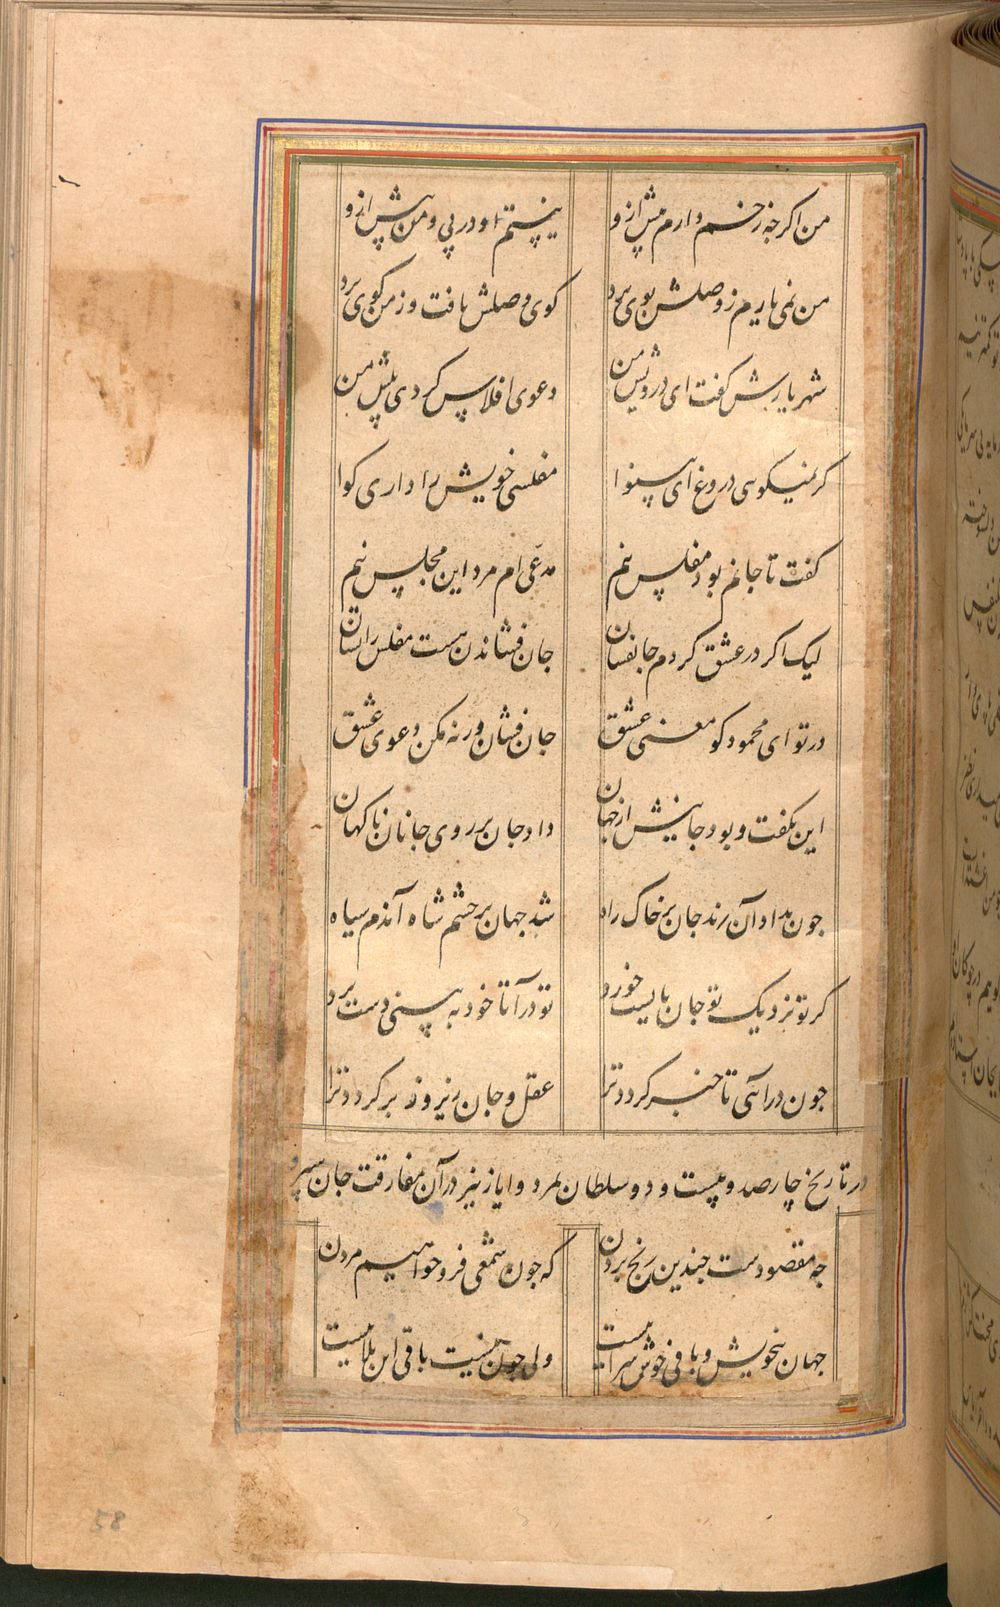 من اکرچه زخم دارم پیش ازو نیستم او در پی و من پیش ازو
من نمی یاریم ز وصلش بوی برد کوی وصلش یافت و ز من کوی برد
شهریارش کفت ای درویش من دعوی افلاس کردی پیش من
کر نمیکویی دروغ ای بینوا مفلسی خویش را داری کوا
کفت تا جانم بود مفلس نیم مدعی ام مرد این مجلس نیم
لیک اکر در عشق کردم جانفشان جان فشاندن هست مفلس را نشان
در تو ای محمود کو معنی عشق جان فشان ورنه مکن دعوی عشق
این بکفت و بود جانیش از جهان داد جان بر روی جانان ناکهان
چون بداد آن رند جان بر خاک راه شد جهان بر چشم شاه آندم سیاه
کر تو نزدیک تو جان بازیست خورد تو درآ تا خود به بینی دست برد
چون درآئی تا خبر کردد ترا عقل و جان زیر و زبر کردد ترا
در تاریخ چارصد و بیست و دو سلطان بمرد و ایاز نیز در آن مفارقت جان سپرد
چه مقصودست چندین رنج بردن که چون شمعی فرو خواهیم مردن
جهان خویش و باقی خوش سراییست ولی چون نیست باقی این بلاییست
58